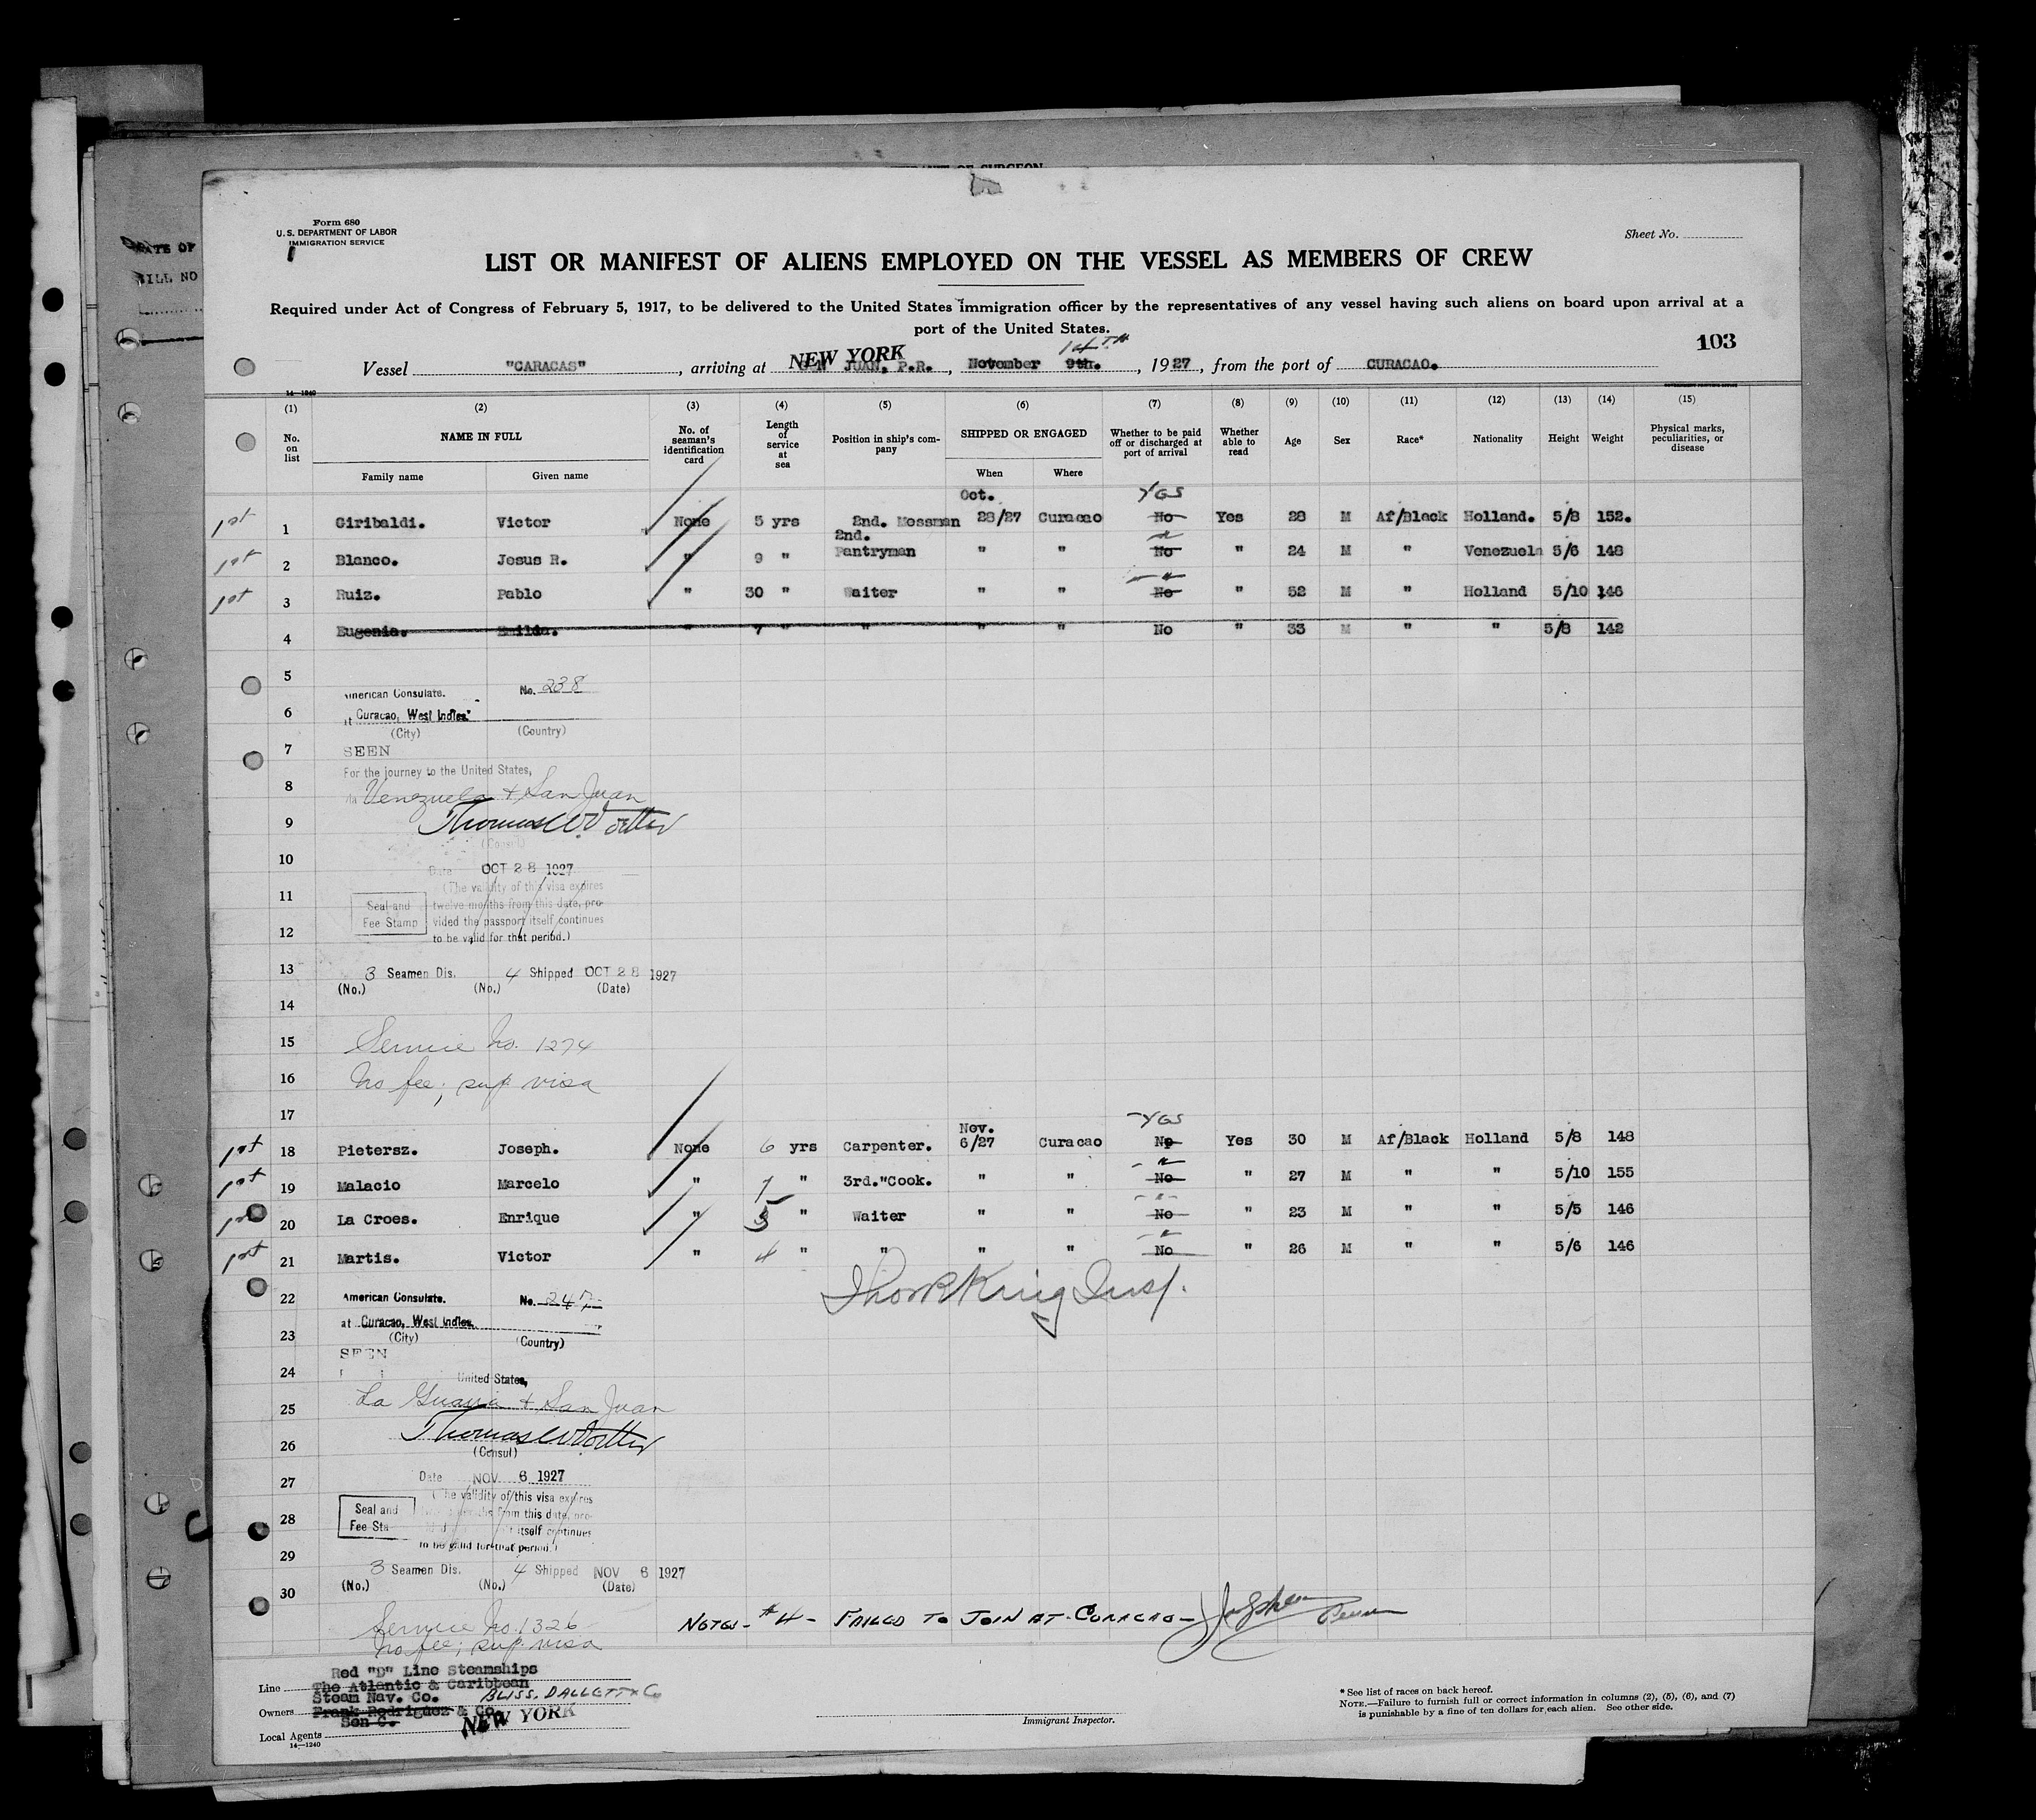 Form 680
U. S. DEPARTMENT OF LABOR
IMMIGRATION SERVICE
Sheet No.
LIST OR MANIFEST OF ALIENS EMPLOYED ON THE VESSEL AS MEMBERS OF CREW
Required under Act of Congress of February 5, 1917, to be delivered to the United States immigration officer by the representatives of any vessel having such aliens on board upon arrival at a
port of the United States.
103
14TH
Vessel "CARACAS", arriving at NEW YORK SAN JUAN, P.R., November 9th., 1927, from the port of CURACAO.
14—1240
(1) (2) (3) (4) (5) (6) (7) (8) (9) (10) (11) (12) (13) (14) (15)
No. on list NAME IN FULL Family name Given name No. of seaman's identification card Length of service at sea Position in ship's company SHIPPED OR ENGAGED When Where Whether to be paid off or discharged at port of arrival Whether able to read Age Sex Race* Nationality Height Weight Physical marks, peculiarities, or disease
Oct. YES
1st 1 Giribaldi. Victor None 5 yrs 2nd. Messman 28/27 Curacao No Yes 28 M Af/Black Holland. 5/8 152.
1st 2 Blanco. Jesus R. " 9 " 2nd. Pantryman " " " No " 24 M " Venezuela 5/6 148
1st 3 Ruiz. Pablo " 30 " Waiter " " " No " 52 M " Holland 5/10 146
4 Eugenia. Emilda. " 7 " " " " No " 33 M " " 5/8 142
5
American Consulate. No. 238
6
at Curacao, West Indies.
(City) (Country)
7
SEEN
For the journey to the United States,
8
via Venezuela & San Juan
9
(Consul)
10
Date OCT 28 1927
(The validity of this visa expires
11
Seal and Fee Stamp
twelve months from this date, pro-
vided the passport itself continues
12
to be valid for that period.)
13 3 Seamen Dis. 4 Shipped OCT 28 1927
(No.) (No.) (Date)
14
15 Service No. 1274
16 No fee; sup. visa
17
Nov. YES
1st 18 Pietersz. Joseph. None 6 yrs Carpenter. 6/27 Curacao No Yes 30 M Af/Black Holland 5/8 148
1st 19 Malacio Marcelo " 7 " 3rd."Cook. " " " No " 27 M " " 5/10 155
1st 20 La Croes. Enrique " 5 " Waiter " " " No " 23 M " " 5/5 146
1st 21 Martis. Victor " 4 " " " " " No " 26 M " " 5/6 146
King Insp.
22 American Consulate. No. 247
at Curacao, West Indies.
23
(City) (Country)
SEEN
24
United States,
25 La Guaira & San Juan
26
(Consul)
27 Date NOV 6 1927
(The validity of this visa expires
28
Seal and Fee Sta
from this date, pro-
itself continues
to be valid for that period.)
29
3 Seamen Dis. 4 Shipped NOV 6 1927
(No.) (No.) (Date)
30
NOTES - #4 - FAILED TO JOIN AT CURACAO -
Service No. 1326
no fee; sup. visa
Line Red "D" Line Steamships
The Atlantic & Caribbean
Steam Nav. Co. BLISS, DALLETT & Co
Owners Frank Rodriguez & Co.
Son C. NEW YORK
Local Agents
14—1240
Immigrant Inspector.
* See list of races on back hereof.
NOTE.—Failure to furnish full or correct information in columns (2), (5), (6), and (7)
is punishable by a fine of ten dollars for each alien. See other side.